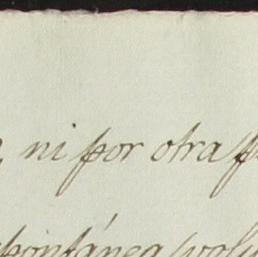 ni por otra
espontánea volu